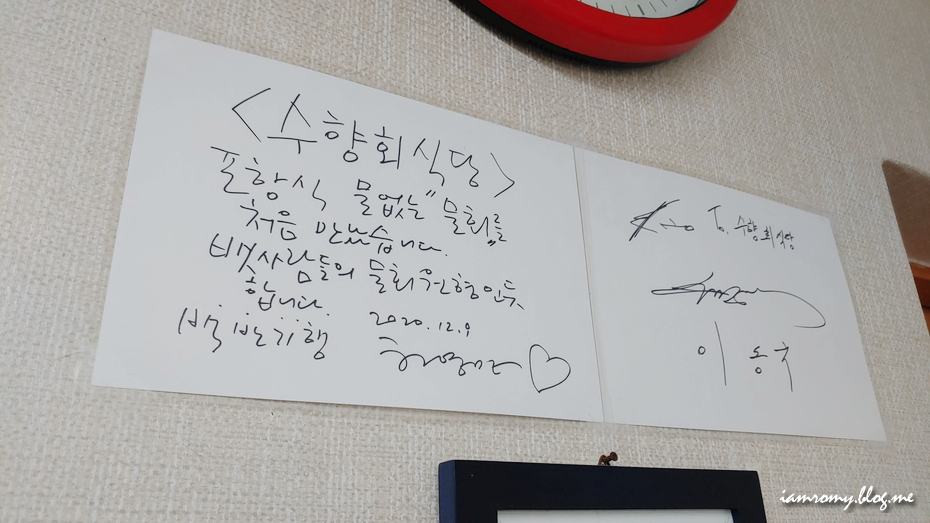 <수향회식당>
포항식 물없는 "물회"를
처음 만났습니다.
뱃사람들의 물회 원형인듯
합니다.
2020.12.9
백반기행
허영만♡
To. 수향회식당
이동국
iamromy.blog.me